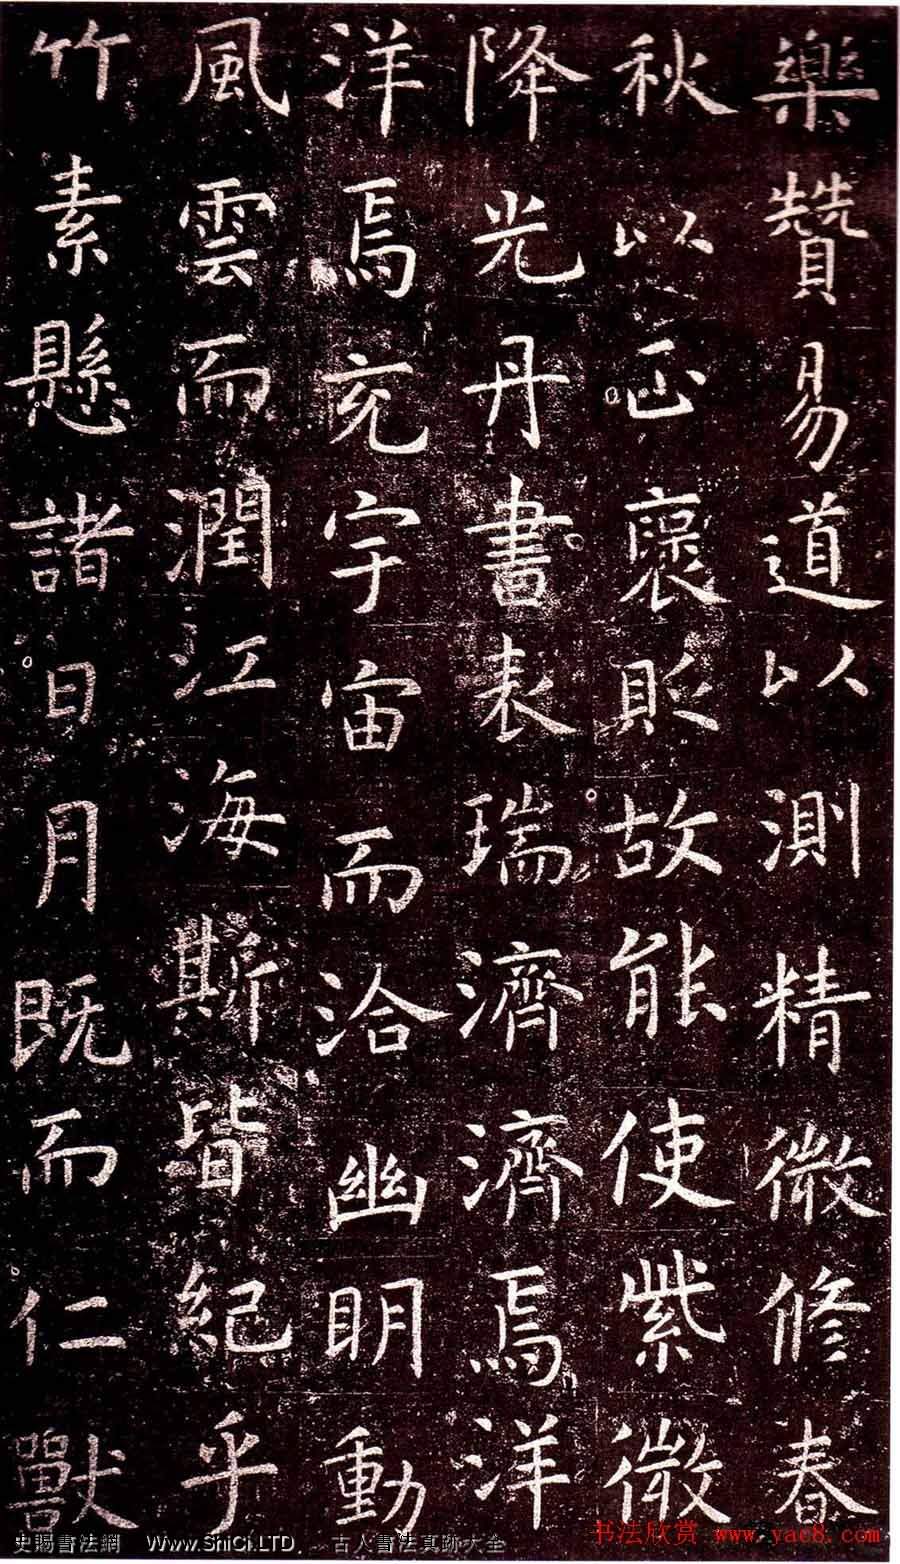 樂贊易道以測精微修春
秋以正褒貶故能使紫微
降光丹書表瑞濟濟焉洋
洋焉充宇宙而洽幽明動
風雲而潤江海斯皆紀乎
竹素懸諸日月既而仁獸
史賜書法網 VWvw.ShiCi.LTD 古人書法真跡大全
书法欣赏 www.yac8.com